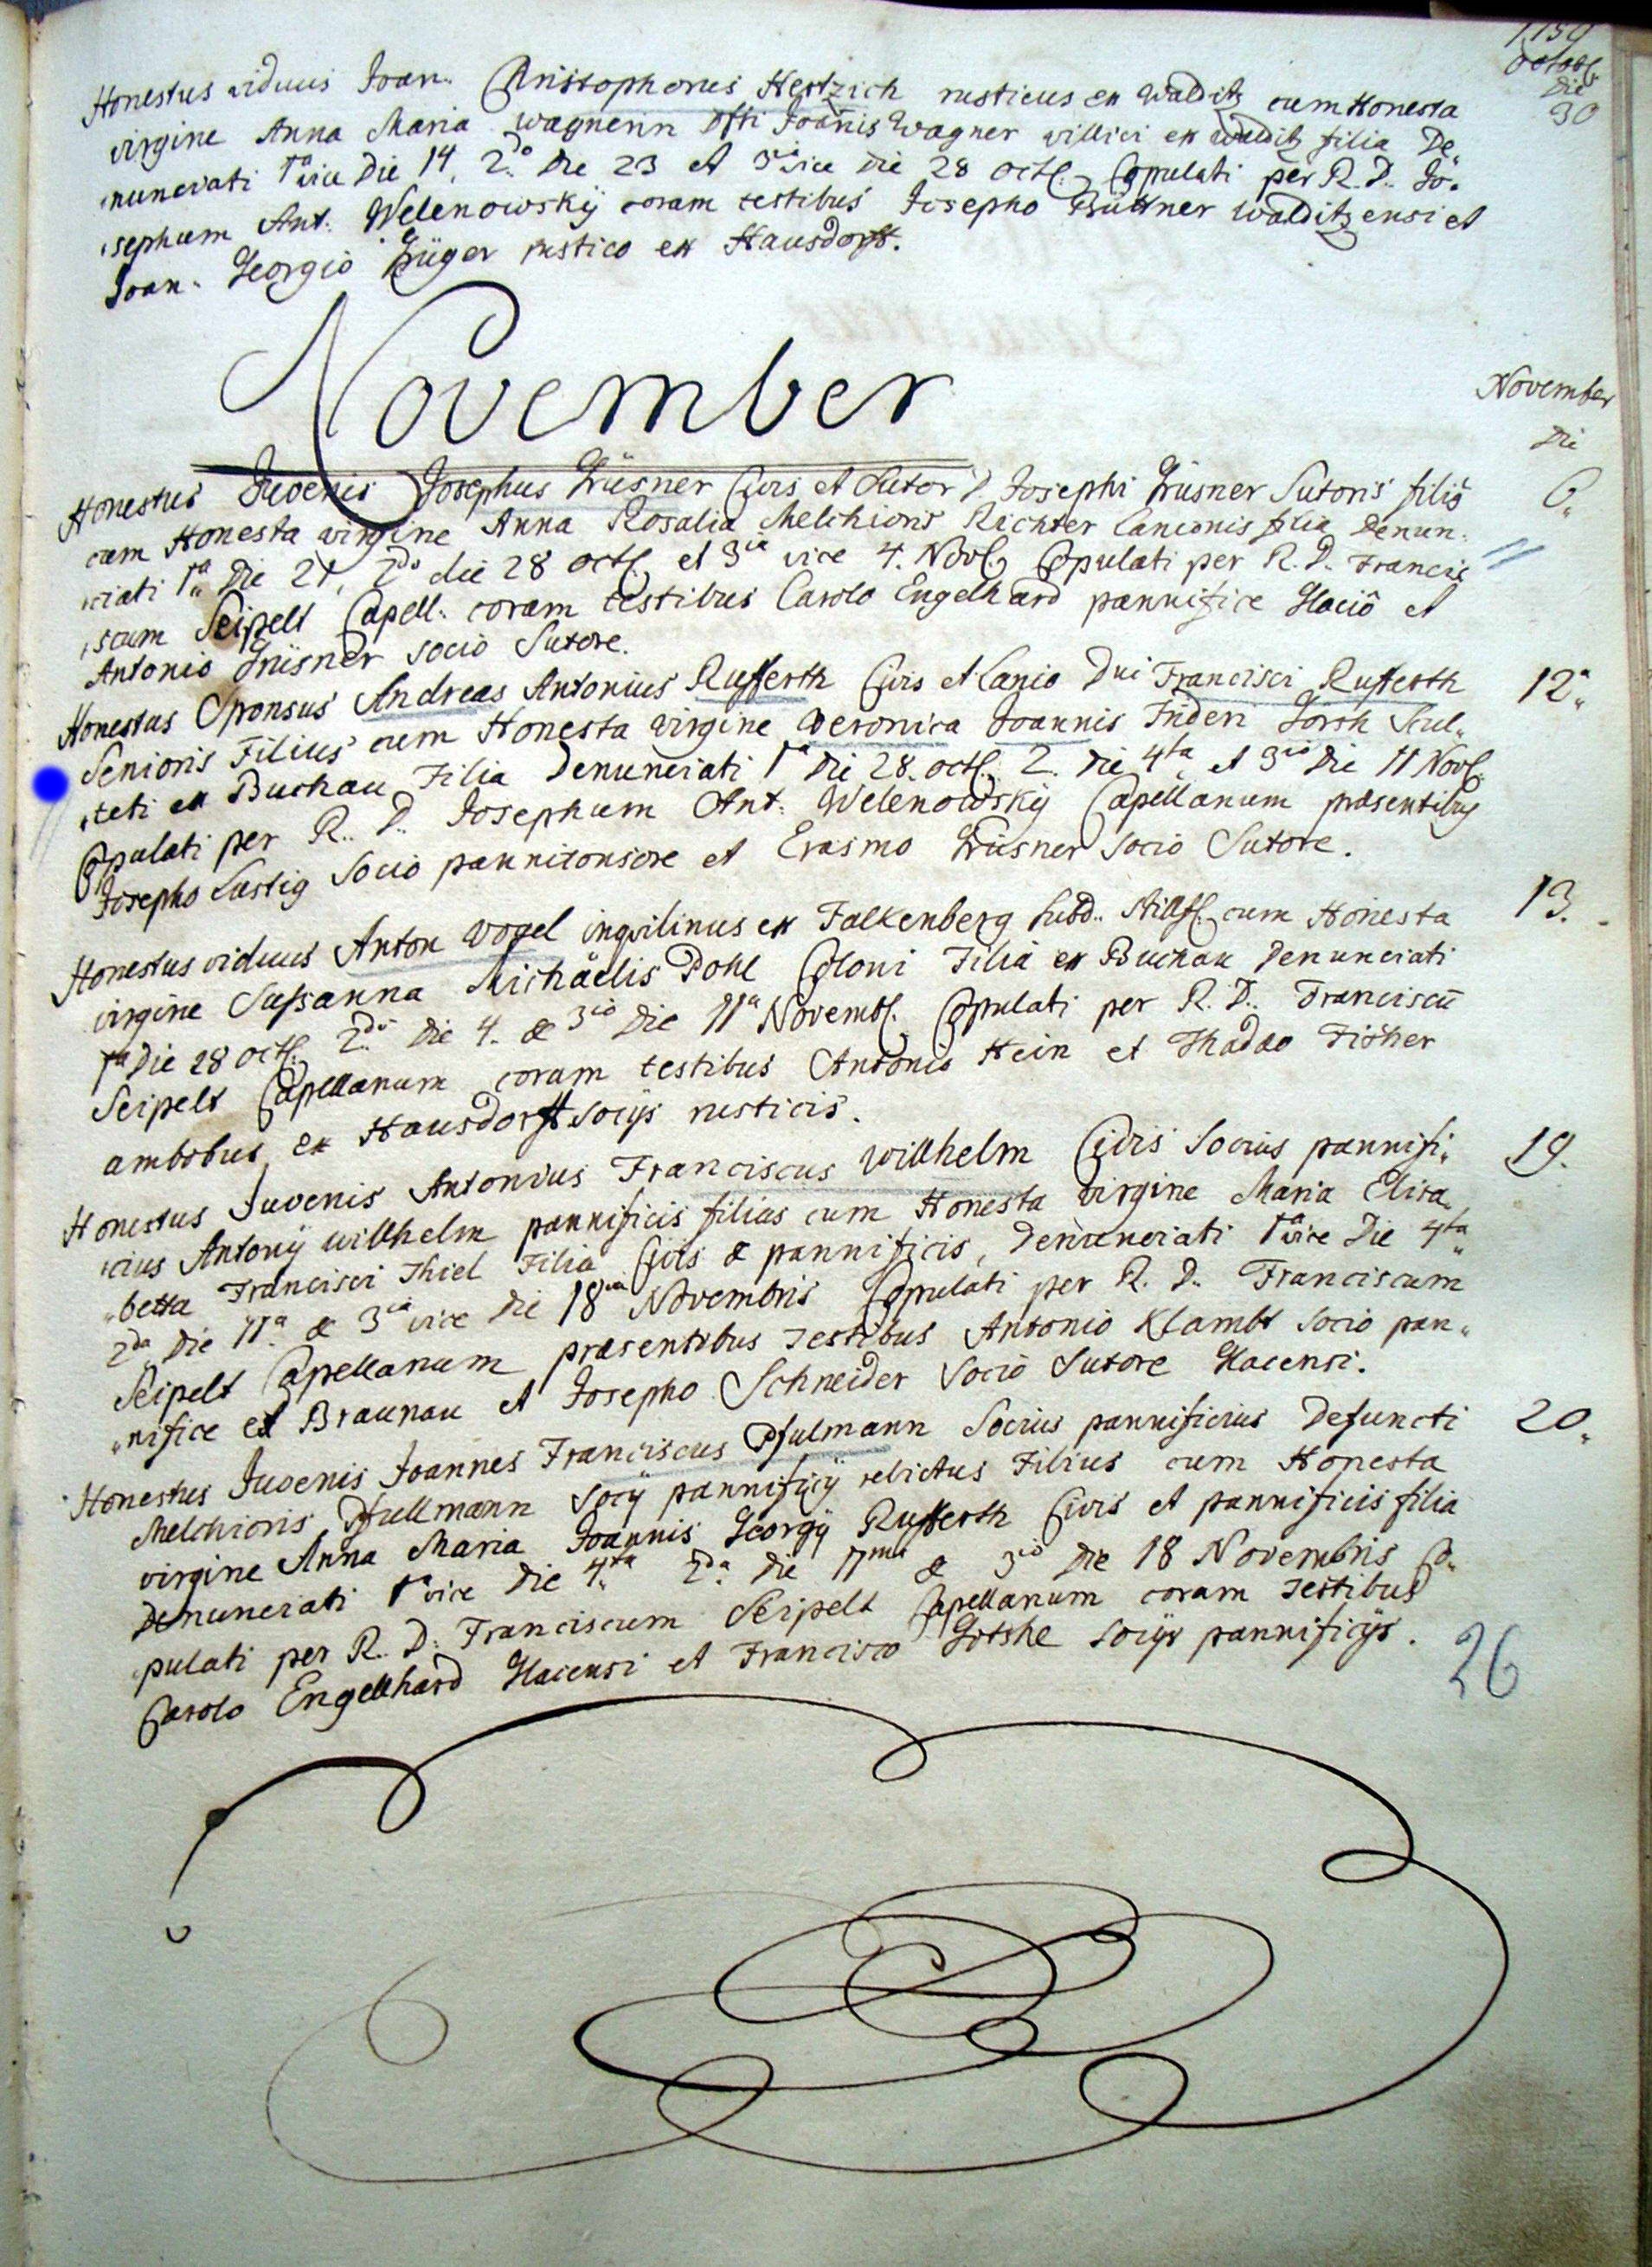 1759
Octobr.
Die
30
Honestus viduus Joan: Christophorus Hertzich rusticus ex Walditz cum Honesta
virgine Anna Maria Wagnerin dfti Joannis Wagner villici ex Walditz filia De,,
,,nunciati 1ma vice Die 14, 2do Die 23 et 3tia vice Die 28 octb. Copulati per R. D. Jo,,
,,sephum Ant: Welenowskÿ coram testibus Josepho Büttner Walditzensi et
Joan: Georgio rustico ex Hausdorff.
November
November
Die
6,,
Honestus Juvenis Josephus Civis et Sutor D Josephi Sutoris fili9
cum Honesta virgine Anna Rosalia Melchioris Richter Lanionis filia Denun,,
,,ciati 1ma Die 21, 2do die 28 octb. et 3tia vice 4. Novb. Copulati per R. D. Francis,,
,,scum Seipelt Capell: coram testibus Carolo Engelhard pannifice Glacio et
Antonio socio Sutore.
12,,
Honestus Sponsus Andreas Antonius Rufferth Civis et Lanio Dni Francisci Rufferth
Senioris Filius cum Honesta virgine Veronica Joannis Frideri Scul,,
,,teti ex Buchau Filia Denunciati 1ma Die 28. octb. 2. Die 4ta et 3tio Die 11 Novb.
Copulati per R. D. Josephum Ant: Welenowskÿ Capellanum præsentibus
Josepho Lustig Socio pannitonsore et Erasmo Socio Sutore.
13.
Honestus viduus Anton Vogel inqvilinus ex Falkenberg Subd. cum Honesta
virgine Sussanna Michäelis Pohl Coloni Filia ex Buchau Denunciati
1ma Die 28 octb. 2do Die 4. & 3tio Die 11a Novemb. Copulati per R. D. Franciscū
Seipelt Capellanum coram testibus Antonio Hein et Thadæo Fisher
ambobus ex Hausdorff socÿs rusticis.
19.
Honestus Juvenis Antonius Franciscus Willhelm Civis Socius pannifi,,
,,cius Antonÿ Willhelm pannificis filius cum Honesta virgine Maria Elisa,,
,,betta Francisci Thiel Filia Civis & pannificis, Denunciati 1ma vice Die 4ta
2da Die 11a & 3tia vice Die 18va Novembris Copulati per R. D. Franciscum
Seipelt Capellanum præsentibus Testibus Antonio Klambt Socio pan,,
,,nifice ex Braunau et Josepho Schneider Socio Sutore Glacensi.
20.
Honestus Juvenis Joannes Franciscus Pfulmann Socius pannificius Defuncti
Melchioris Pfullmann Socÿ pannificÿ relictus Filius cum Honesta
virgine Anna Maria Joannis Georgÿ Rufferth Civis et pannificis filia
Denunciati 1ma vice Die 4ta 2da Die 11ma & 3tio Die 18 Novembris Co,,
,,pulati per R. D. Franciscum Seipelt Capellanum coram Testibus
Carolo Engelhard Glacensi et Francisco Gotshe socÿs pannificÿs.
26